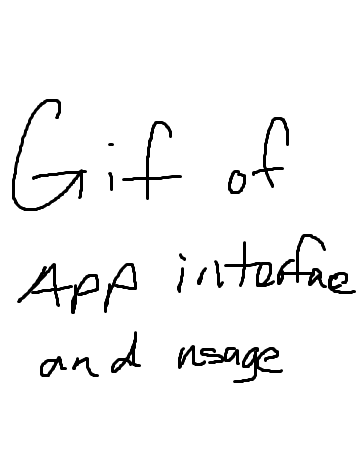 Gif of
App interfae
and usage